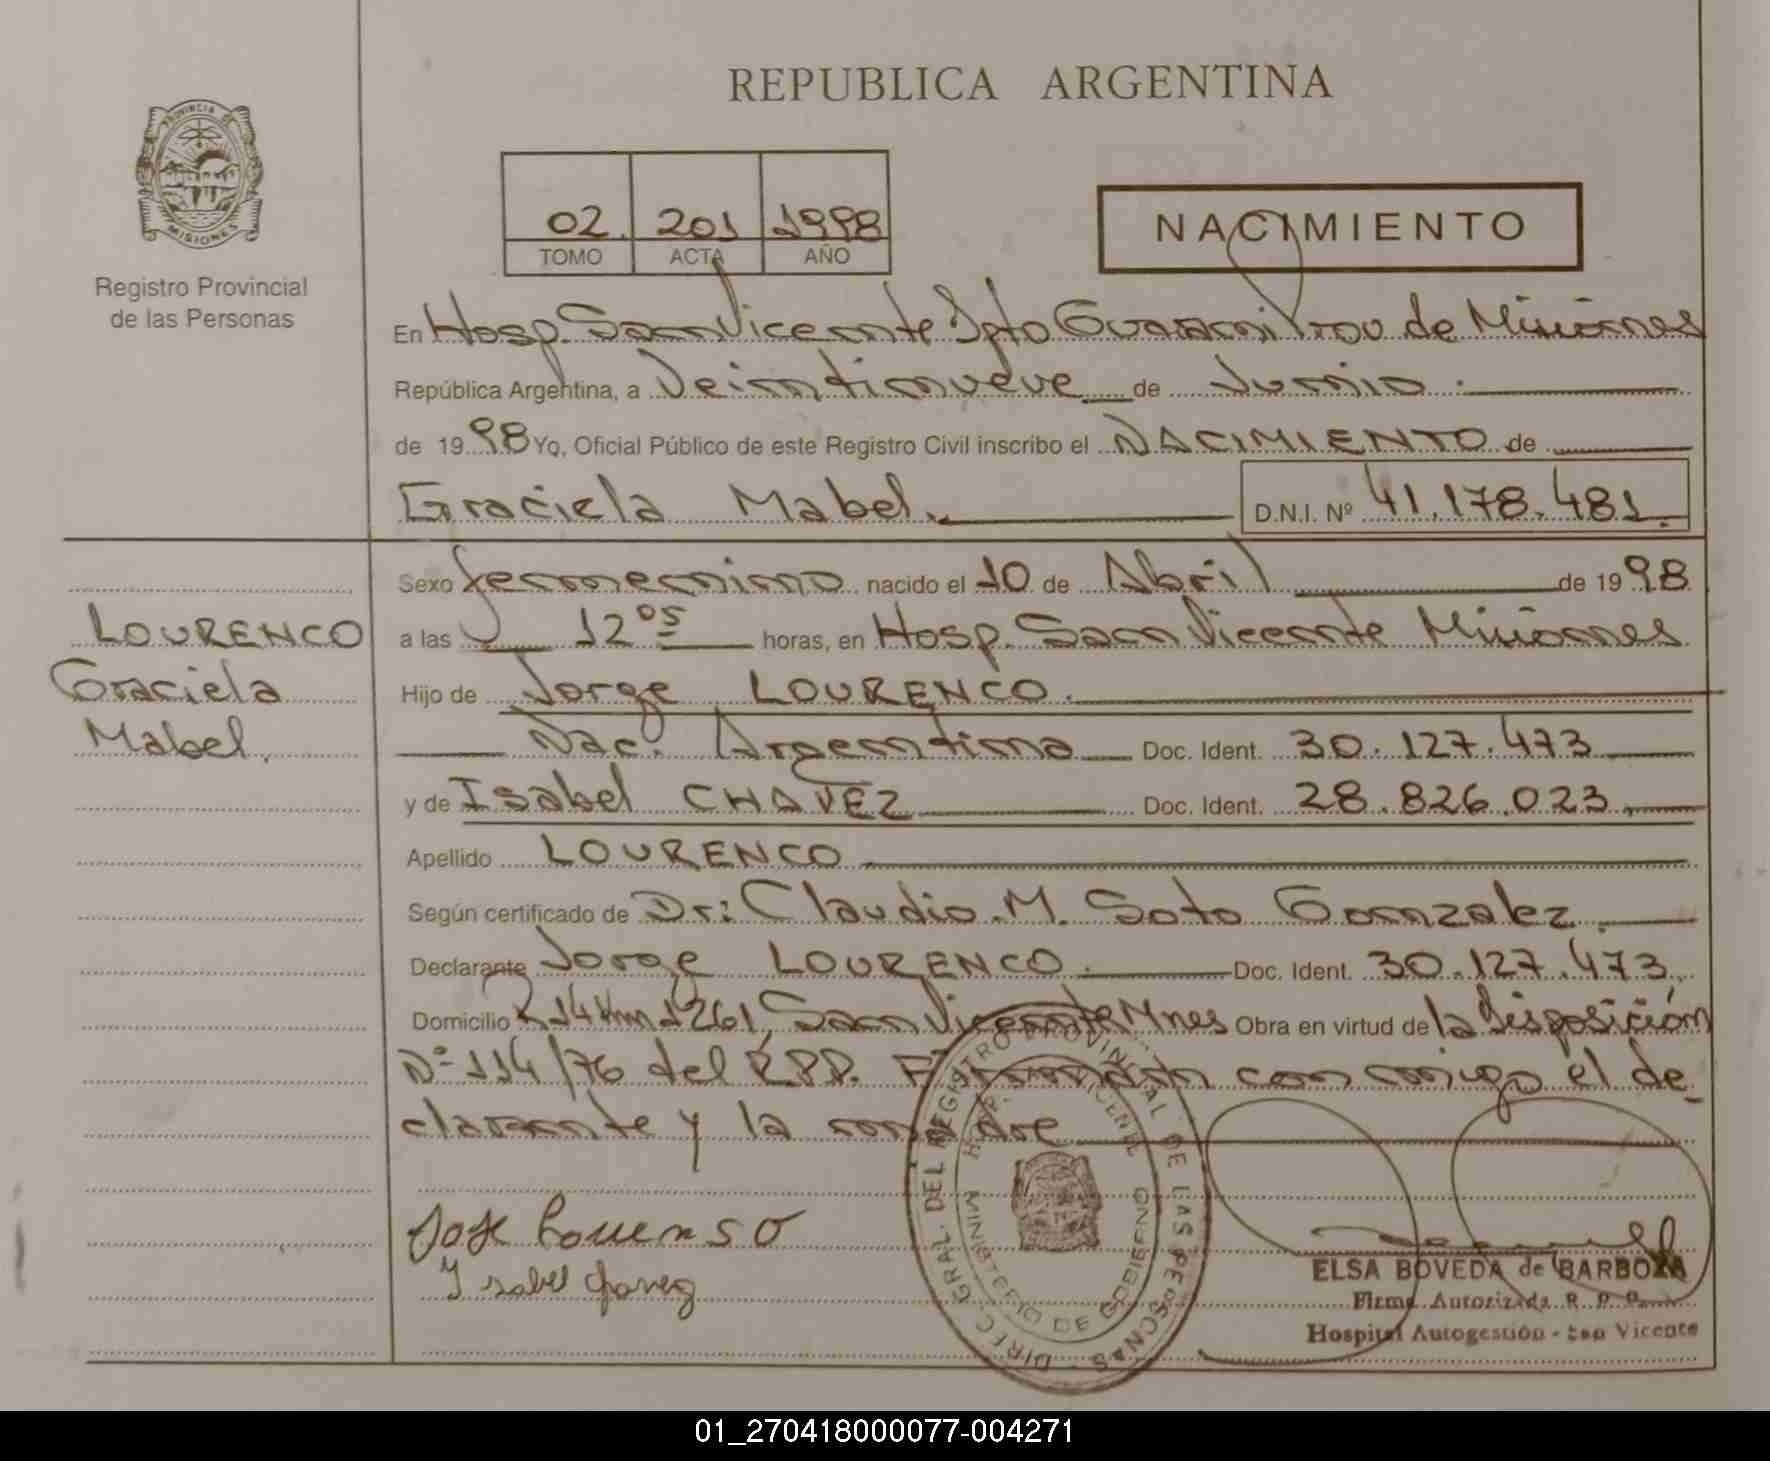 REPUBLICA ARGENTINA
PROVINCIA DE
MISIONES
Registro Provincial
de las Personas
02. 201 1998
TOMO ACTA AÑO
NACIMIENTO
En Hosp. San Vicente Dpto Guarani Prov de Misiones
República Argentina, a Veintinueve de Junio.
de 1998 Yo, Oficial Público de este Registro Civil inscribo el NACIMIENTO de
Graciela Mabel. D.N.I. Nº 41.178.481.
Sexo femenino nacido el 10 de Abril de 1998
LOURENCO
Graciela
Mabel.
a las 12 05 horas, en Hosp. San Vicente Misiones
Hijo de Jorge LOURENCO.
Nac. Argentina Doc. Ident. 30.127.473
y de Isabel CHAVEZ Doc. Ident. 28.826.023
Apellido LOURENCO
Según certificado de Dr: Claudio M. Soto Gonzalez.
Declarante Jorge LOURENCO. Doc. Ident. 30.127.473
Domicilio R 14 km 1261, San Vicente Mnes Obra en virtud de la disposición
Nº 114/76 del R.P.P. Firmando con migo el de_
clarante y la madre
DIREC. GRAL. DEL REGISTRO PROVINCIAL DE LAS PERSONAS
MINISTERIO DE GOBIERNO
Jose Lourenso
Ysabel Chavez
ELSA BOVEDA de BARBOZA
Firma Autorizada R. P. P.
Hospital Autogestión - San Vicente
01_270418000077-004271